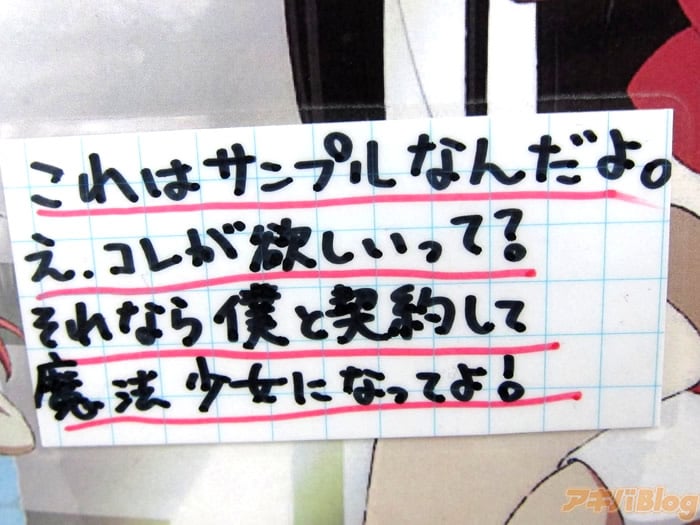 これはサンプルなんだよ。
え、コレが欲しいって?
それなら僕と契約して
魔法少女になってよ!
アキバBlog